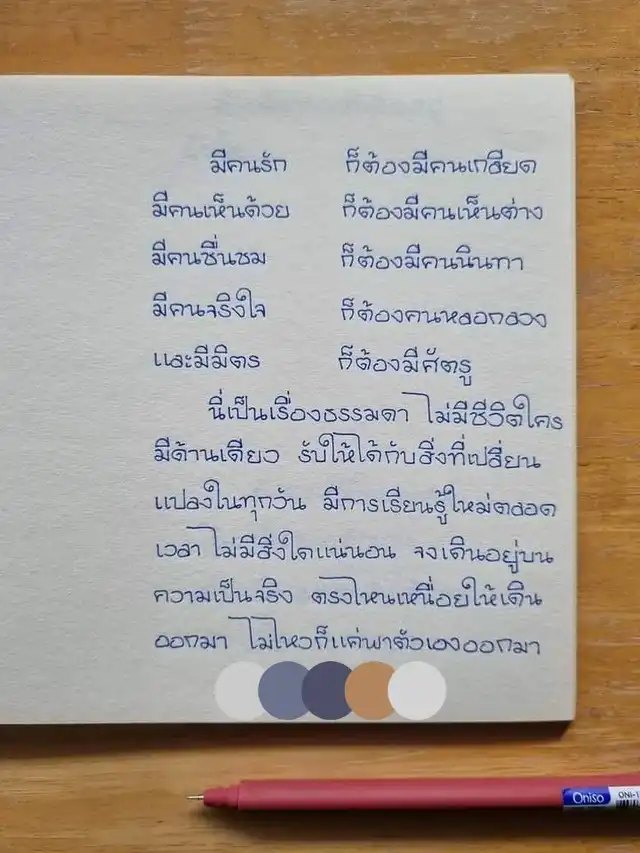 มีคนรัก ก็ต้องมีคนเกลียด
มีคนเห็นด้วย ก็ต้องมีคนเห็นต่าง
มีคนชื่นชม ก็ต้องมีคนนินทา
มีคนจริงใจ ก็ต้องคนหลอกลวง
และมีมิตร ก็ต้องมีศัตรู
นี่เป็นเรื่องธรรมดา ไม่มีชีวิตใคร
มีด้านเดียว รับให้ได้กับสิ่งที่เปลี่ยน
แปลงในทุกวัน มีการเรียนรู้ใหม่ตลอด
เวลา ไม่มีสิ่งใดแน่นอน จงเดินอยู่บน
ความเป็นจริง ตรงไหนเหนื่อยให้เดิน
ออกมา ไม่ไหวก็แค่พาตัวเองออกมา
Oniso ONI-1